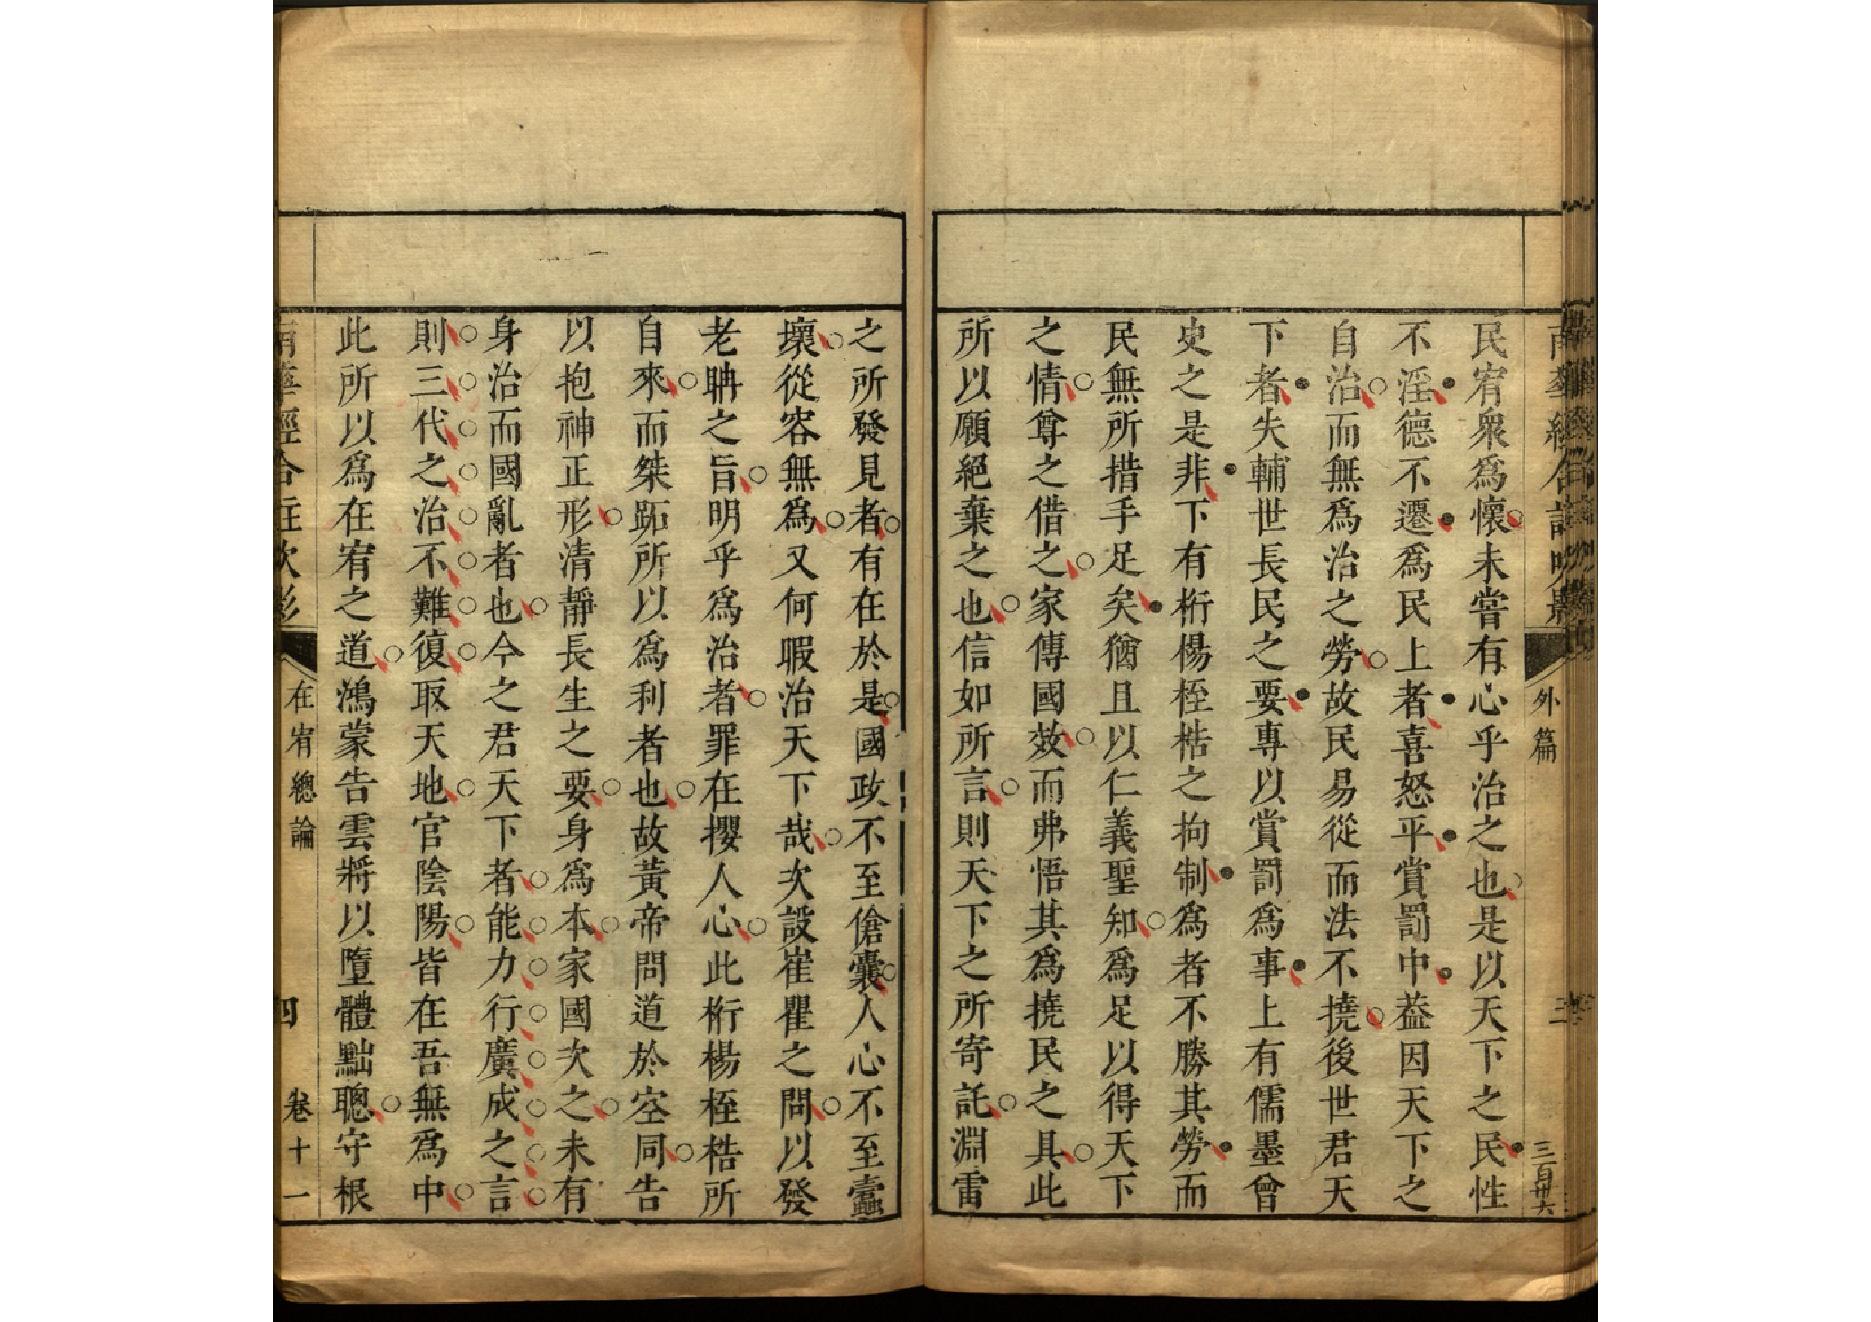 外篇
三百廿六
民宥衆爲懷未嘗有心乎治之也是以天下之民性
不淫德不遷爲民上者喜怒平賞罰中葢因天下之
自治而無爲治之勞故民易從而法不撓後世君天
下者失輔世長民之要專以賞罰爲事上有儒墨曾
史之是非下有桁楊桎梏之拘制爲者不勝其勞而
民無所措手足矣猶且以仁義聖知爲足以得天下
之情尊之借之家傳國效而弗悟其爲撓民之具此
所以願絕棄之也信如所言則天下之所寄託淵雷
之所發見者有在於是國政不至傖囊人心不至蠹
壞從容無爲又何暇治天下哉次設崔瞿之問以發
老聃之旨明乎爲治者罪在攖人心此桁楊桎梏所
自來而桀跖所以爲利者也故黃帝問道於空同告
以抱神正形清靜長生之要身爲本家國次之未有
身治而國亂者也今之君天下者能力行廣成之言
則三代之治不難復取天地官陰陽皆在吾無爲中
此所以爲在宥之道鴻蒙告雲將以墮體黜聰守根
在宥總論
四
卷十一